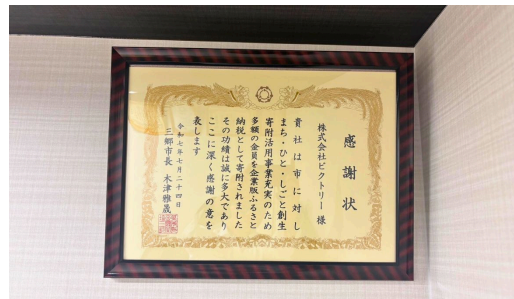 感謝状
株式会社ビクトリー 様
貴社は市に対し
まち・ひと・しごと創生
寄附活用事業充実のため
多額の金員を企業版ふるさと
納税として寄附されました
その功績は誠に多大であり
ここに深く感謝の意を
表します
令和七年七月二十四日
三郷市長 木津雅晟